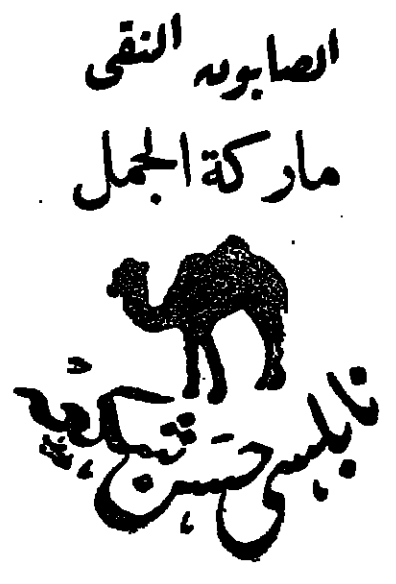 الصابون النقى
ماركة الجمل
نابلسى حسن